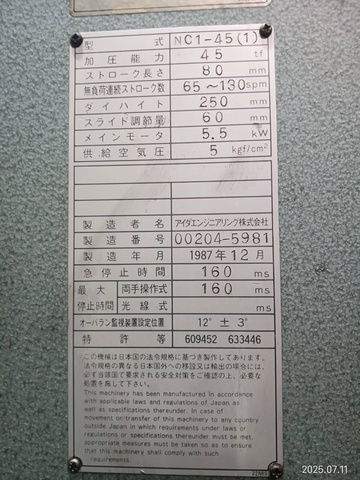 型式 NC1-45(1)
加圧能力 45 tf
ストローク長さ 80 mm
無負荷連続ストローク数 65～130 spm
ダイハイト 250 mm
スライド調節量 60 mm
メインモータ 5.5 kW
供給空気圧 5 kgf/cm²
製造者名 アイダエンジニアリング株式会社
製造番号 00204-5981
製造年月 1987年12月
急停止時間 160 ms
最大停止時間 両手操作式 160 ms
光線式 ms
オーバラン監視装置設定位置 12° ± 3°
特許等 609452 633446
この機械は日本国の法令規格に基づき製作してあります。
法令規格の異なる日本国外への移設又は輸出の場合には、
必ず当該国で要求される安全対策をご確認の上、必要な
処置を施して下さい。
This machinery has been manufactured in accordance
with applicable laws and regulations of Japan as
well as specifications thereunder. In case of
movement or transfer of this machinery to any country
outside Japan in which requirements under laws or
regulations or specifications thereunder must be met,
appropriate measures must be taken so as to ensure
that this machinery shall comply with such
requirements.
2025.07.11